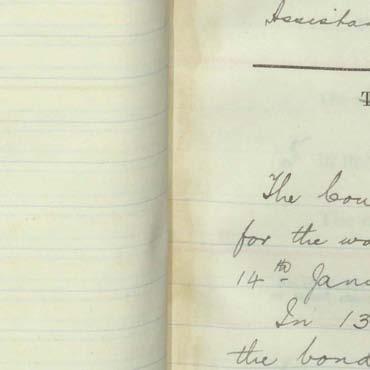 Assista
T
The Cou
for the wo
14th Janu
In 13
the bond